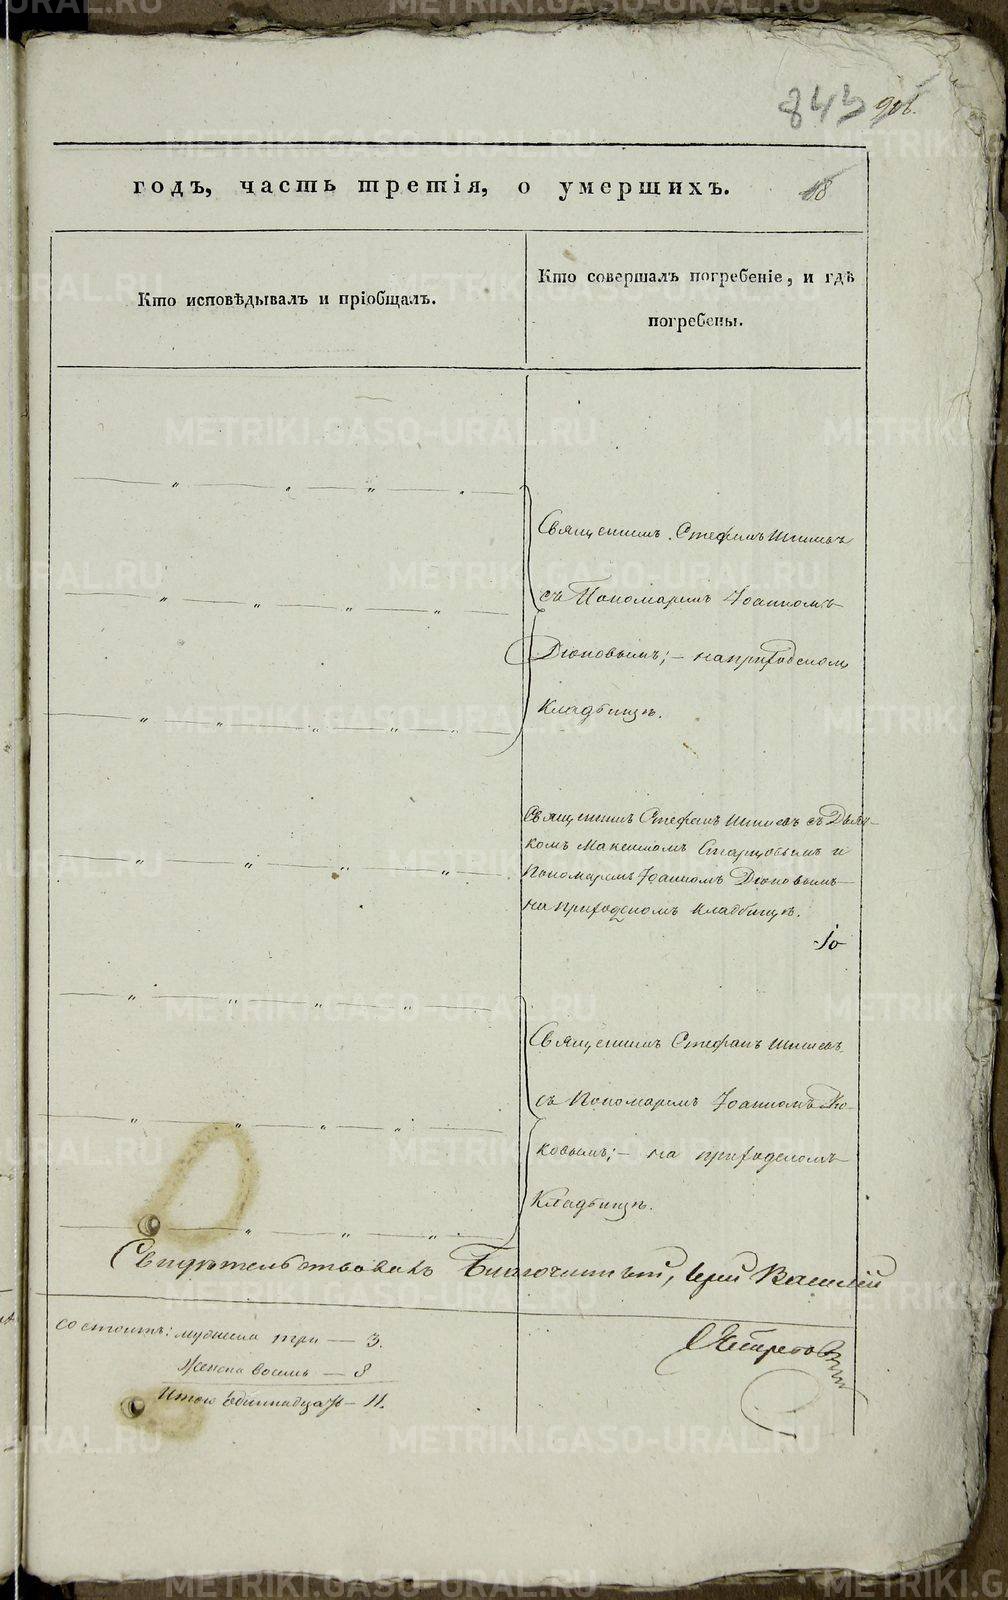 843
908.
годъ, часть третія, о умершихъ.
18
Кто исповѣдывалъ и пріобщалъ.
Кто совершалъ погребеніе, и гдѣ
погребены.
Священникъ Стефанъ
съ Пономаремъ Іоанномъ
на приходскомъ
Кладбищѣ.
Священникъ Стефанъ съ Дьяч-
комъ Максимомъ Старцовымъ и
Пономаремъ Іоанномъ
на приходскомъ кладбищѣ.
Священникъ Стефанъ
съ Пономаремъ Іоанномъ
ковымъ; — на приходскомъ
Кладбищѣ.
Свидѣтельствовалъ Благочинный, Іерей Василій
состоитъ: мужеска три — 3.
Женска восемь — 8
Итого Одиннадцать — 11.
METRIKI.GASO-URAL.RU